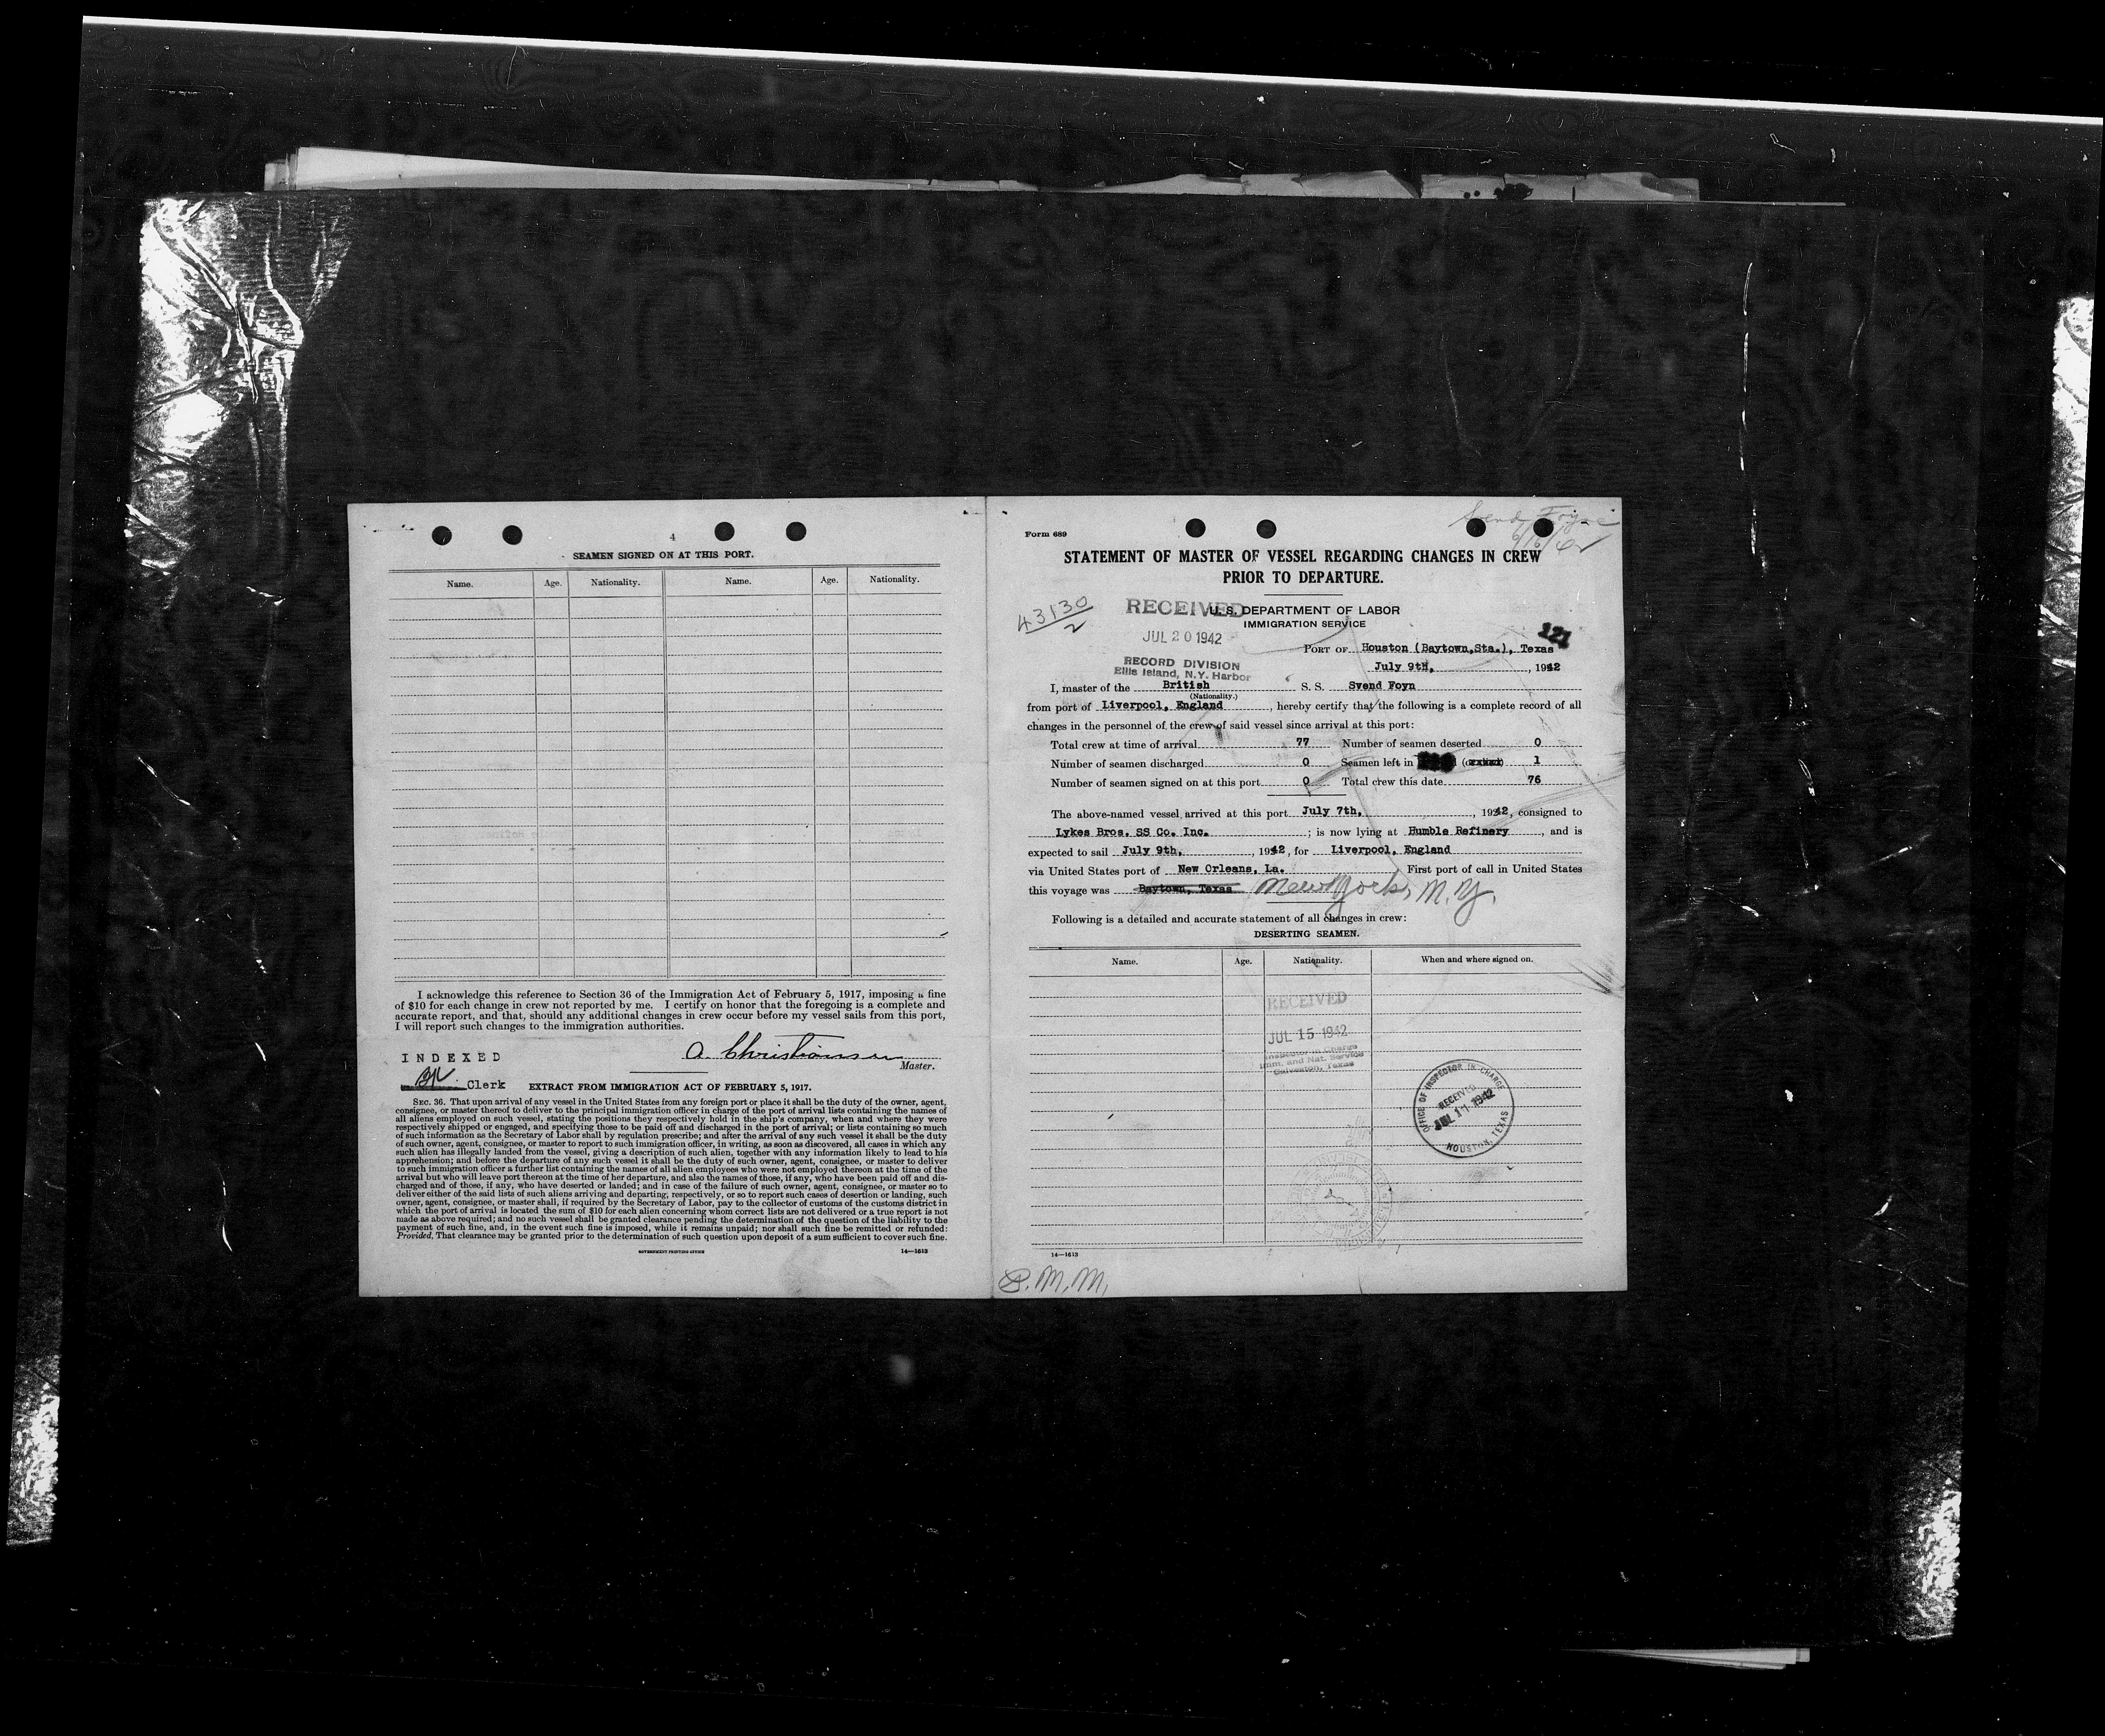 4
SEAMEN SIGNED ON AT THIS PORT.
Name. Age. Nationality. Name. Age. Nationality.
I acknowledge this reference to Section 36 of the Immigration Act of February 5, 1917, imposing a fine
of $10 for each change in crew not reported by me. I certify on honor that the foregoing is a complete and
accurate report, and that, should any additional changes in crew occur before my vessel sails from this port,
I will report such changes to the immigration authorities.
INDEXED
A. Christiansen
Master.
Clerk
EXTRACT FROM IMMIGRATION ACT OF FEBRUARY 5, 1917.
SEC. 36. That upon arrival of any vessel in the United States from any foreign port or place it shall be the duty of the owner, agent,
consignee, or master thereof to deliver to the principal immigration officer in charge of the port of arrival lists containing the names of
all aliens employed on such vessel, stating the positions they respectively hold in the ship's company, when and where they were
respectively shipped or engaged, and specifying those to be paid off and discharged in the port of arrival; or lists containing so much
of such information as the Secretary of Labor shall by regulation prescribe; and after the arrival of any such vessel it shall be the duty
of such owner, agent, consignee, or master to report to such immigration officer, in writing, as soon as discovered, all cases in which any
such alien has illegally landed from the vessel, giving a description of such alien, together with any information likely to lead to his
apprehension; and before the departure of any such vessel it shall be the duty of such owner, agent, consignee, or master to deliver
to such immigration officer a further list containing the names of all alien employees who were not employed thereon at the time of the
arrival but who will leave port thereon at the time of her departure, and also the names of those, if any, who have been paid off and dis-
charged and of those, if any, who have deserted or landed; and in case of the failure of such owner, agent, consignee, or master so to
deliver either of the said lists of such aliens arriving and departing, respectively, or so to report such cases of desertion or landing, such
owner, agent, consignee, or master shall, if required by the Secretary of Labor, pay to the collector of customs of the customs district in
which the port of arrival is located the sum of $10 for each alien concerning whom correct lists are not delivered or a true report is not
made as above required; and no such vessel shall be granted clearance pending the determination of the question of the liability to the
payment of such fine, and, in the event such fine is imposed, while it remains unpaid; nor shall such fine be remitted or refunded:
Provided, That clearance may be granted prior to the determination of such question upon deposit of a sum sufficient to cover such fine.
GOVERNMENT PRINTING OFFICE 14—1613
Svend Foyn
6/16/42
Form 689
STATEMENT OF MASTER OF VESSEL REGARDING CHANGES IN CREW
PRIOR TO DEPARTURE.
43130
2
RECEIVED
JUL 20 1942
RECORD DIVISION
Ellis Island, N.Y. Harbor
U. S. DEPARTMENT OF LABOR
IMMIGRATION SERVICE
121
PORT OF Houston (Baytown,Sta.), Texas
July 9th, 1942
I, master of the British S. S. Svend Foyn
(Nationality.)
from port of Liverpool, England, hereby certify that the following is a complete record of all
changes in the personnel of the crew of said vessel since arrival at this port:
Total crew at time of arrival 77 Number of seamen deserted 0
Number of seamen discharged 0 Seamen left in 1
Number of seamen signed on at this port 0 Total crew this date 76
The above-named vessel arrived at this port July 7th, 1942, consigned to
Lykes Bros. SS Co. Inc. ; is now lying at Humble Refinery, and is
expected to sail July 9th, 1942, for Liverpool, England
via United States port of New Orleans, La. First port of call in United States
this voyage was Baytown, Texas New York, N.Y.
Following is a detailed and accurate statement of all changes in crew:
DESERTING SEAMEN.
Name. Age. Nationality. When and where signed on.
RECEIVED
JUL 15 1942
Inspector in Charge
Imm. and Nat. Service
Galveston, Texas
OFFICE OF INSPECTOR IN CHARGE
RECEIVED
JUL 11 1942
HOUSTON, TEXAS
14—1613
P.M.M.